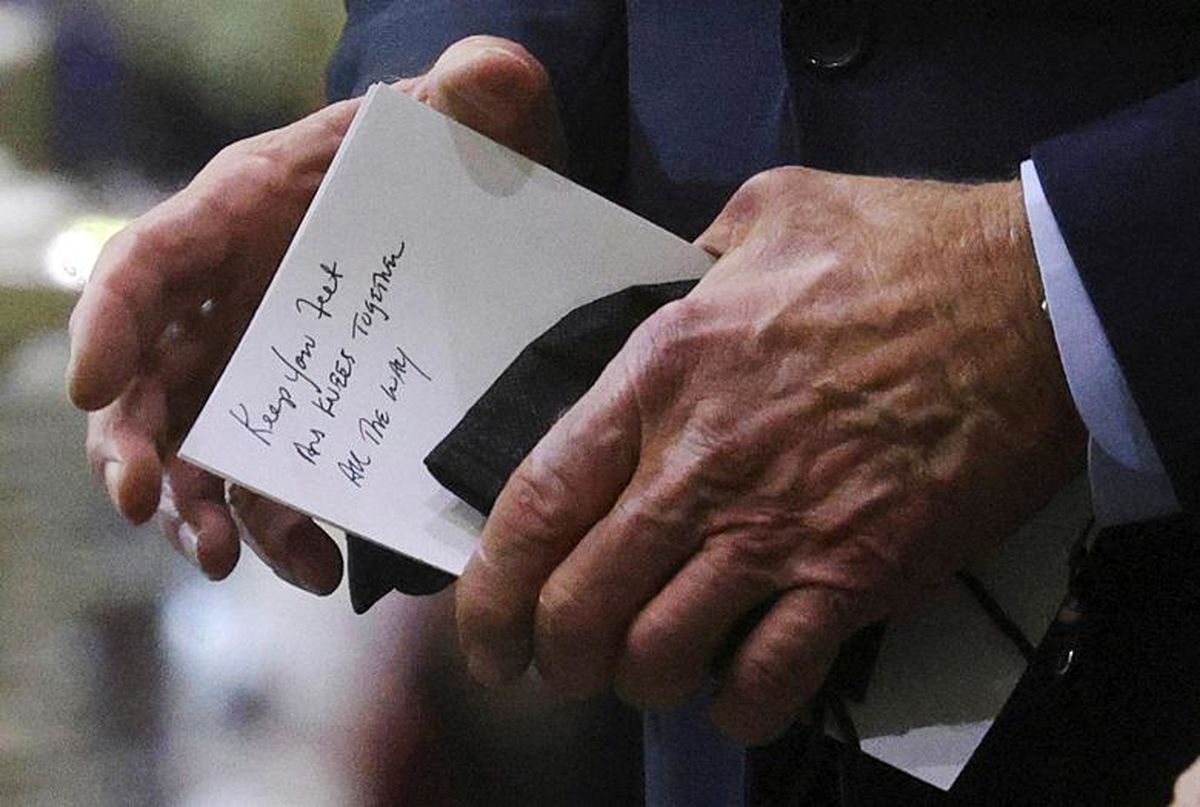 Keep You Feet
And KNEES TOGETHER
All THE WAY